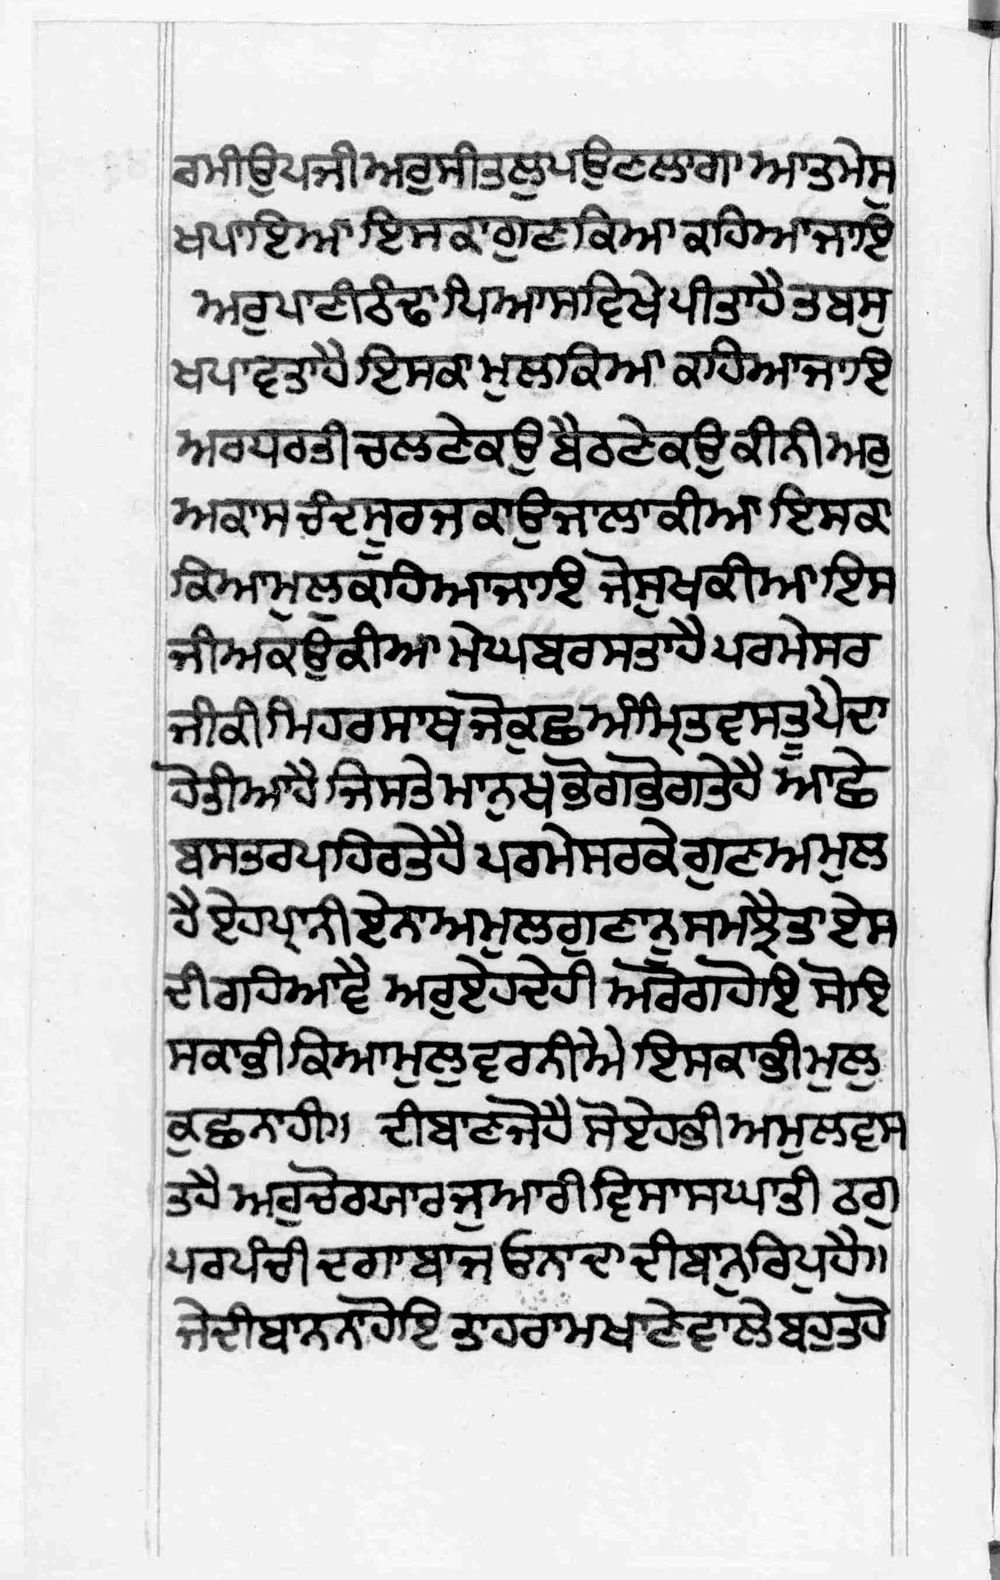 ਰਮੀਉਪਜੀਅਰੁਸੀਤਲੁਪਉਣਲਾਗਾ ਆਤਮੇਸੁ
ਖਪਾਇਆ ਇਸਕਾਗੁਣਕਿਆ ਕਹਿਆਜਾਇ
ਅਰੁਪਾਣੀਠੰਢਾਪਿਆਸਵਿਖੇਪੀਤਾਹੈਤਬਸੁ
ਖਪਾਵਤਾਹੈਇਸਕਾਮੁਲਕਿਆ ਕਹਿਆਜਾਇ
ਅਰਧਰਤੀਚਲਣੇਕਉਬੈਠਣੇਕਉਕੀਨੀਅਰੁ
ਅਕਾਸਚੰਦਸੂਰਜਕਾਉਜਾਲਾਕੀਆ ਇਸਕਾ
ਕਿਆਮੁਲੁਕਹਿਆਜਾਇ ਜੋਸੁਖਕੀਆਇਸ
ਜੀਅਕਉਕੀਆ ਮੇਘਬਰਸਤਾਹੈਪਰਮੇਸਰ
ਜੀਕੀਮਿਹਰਸਾਥਜੋਕੁਛਅੰਮ੍ਰਿਤਵਸਤੂਪੈਦਾ
ਹੋਤੀਆਹੈਜਿਸਤੇਮਾਨੁਖਭੋਗਭੋਗਤੇਹੈ ਆਛੇ
ਬਸਤਰਪਹਿਰਤੇਹੈਪਰਮੇਸਰਕੇਗੁਣਅਮੁਲ
ਹੈਏਹਪ੍ਰਾਨੀਏਨਾਅਮੁਲਗੁਣਾਨੂਸਮਝੈਤਾਏਸ
ਦੀਗਹਿਆਵੈ ਅਰੁਏਹਦੇਹੀ ਅਰੋਗਹੋਇ ਸੋਇ
ਸਕਾਭੀਕਿਆਮੁਲੁਵਰਨੀਐ ਇਸਕਾਭੀਮੁਲੁ
ਕੁਛਨਾਹੀ॥ ਦੀਬਾਣਜੋਹੈ ਸੋਏਹਭੀਅਮੁਲਵਸ
ਤਹੈਅਰੁਚੋਰਯਾਰਜੁਆਰੀਵਿਸਾਸਘਾਤੀ ਠਗੁ
ਪਰਪੰਚੀਦਗਾਬਾਜਓਨਾਦਾਦੀਬਾਨੁਰਿਪੁਹੈ॥
ਜੇਦੀਬਾਨਨਾਹੋਇਤਾਹਰਾਮਖਾਣੇਵਾਲੇਬਹੁਤਹੋ